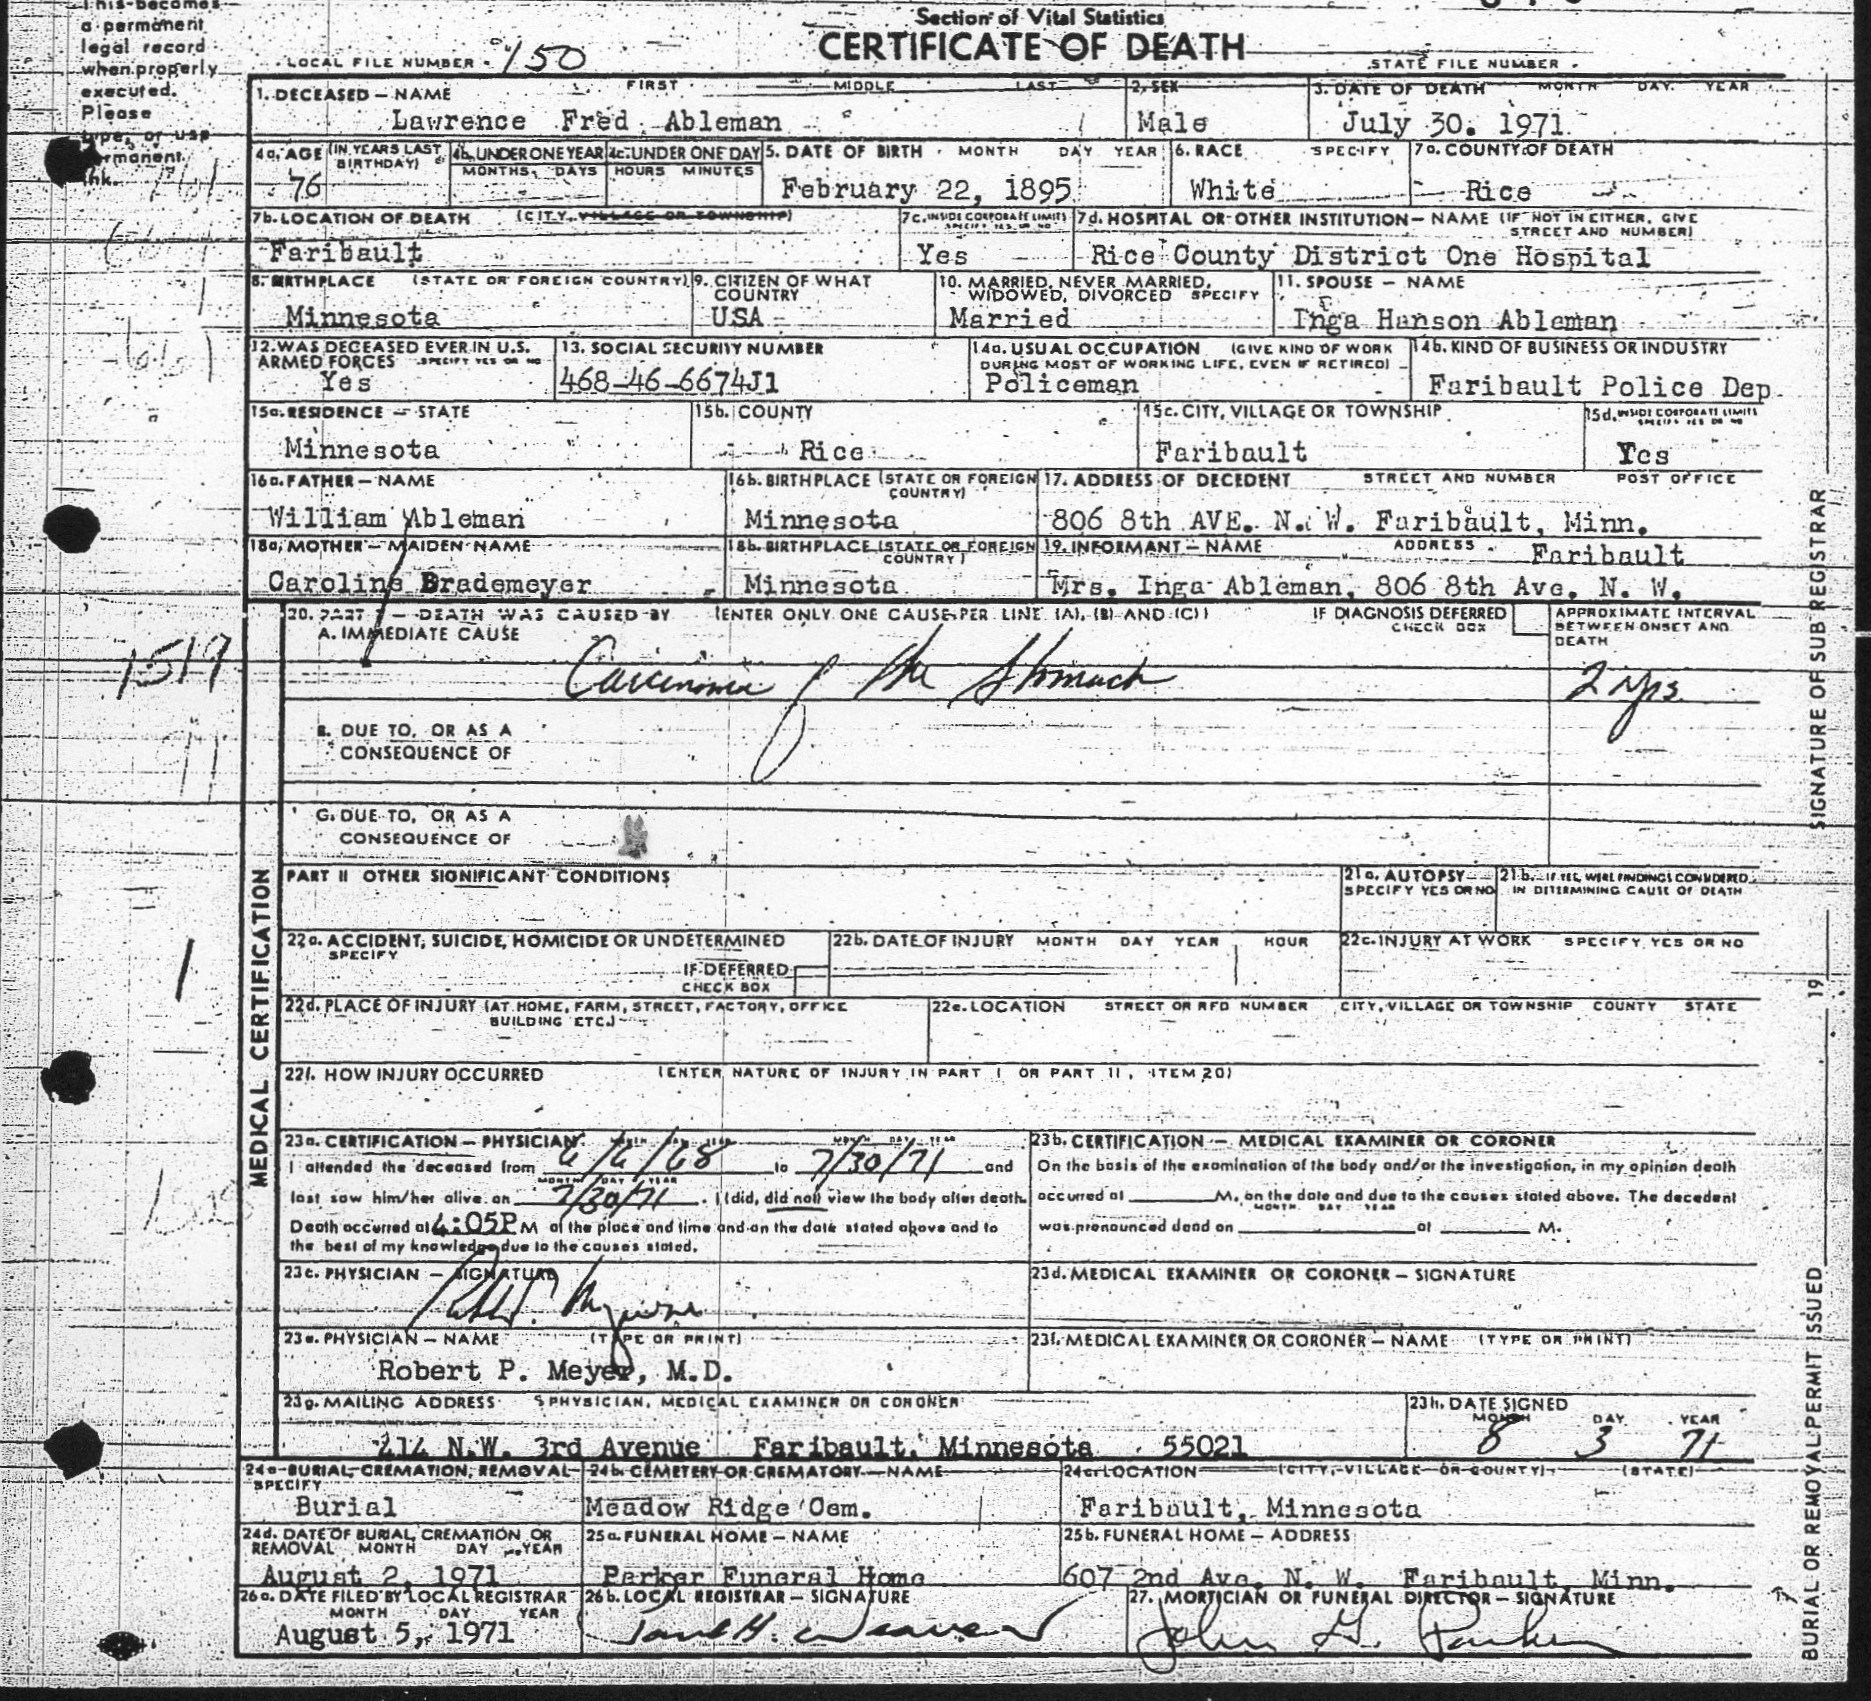 This becomes
a permanent
legal record
when properly
executed.
Please
type, or use
permanent
ink.
Section of Vital Statistics
CERTIFICATE OF DEATH
LOCAL FILE NUMBER 150
STATE FILE NUMBER
1. DECEASED — NAME FIRST MIDDLE LAST 2. SEX 3. DATE OF DEATH MONTH DAY YEAR
Lawrence Fred Ableman Male July 30. 1971
4a. AGE (IN YEARS LAST BIRTHDAY) 4b. UNDER ONE YEAR 4c. UNDER ONE DAY 5. DATE OF BIRTH MONTH DAY YEAR 6. RACE SPECIFY 7a. COUNTY OF DEATH
MONTHS DAYS HOURS MINUTES
76 February 22, 1895 White Rice
7b. LOCATION OF DEATH (CITY, VILLAGE OR TOWNSHIP) 7c. INSIDE CORPORATE LIMITS SPECIFY YES OR NO 7d. HOSPITAL OR OTHER INSTITUTION — NAME (IF NOT IN EITHER, GIVE STREET AND NUMBER)
Faribault Yes Rice County District One Hospital
8. BIRTHPLACE (STATE OR FOREIGN COUNTRY) 9. CITIZEN OF WHAT COUNTRY 10. MARRIED, NEVER MARRIED, WIDOWED, DIVORCED SPECIFY 11. SPOUSE — NAME
Minnesota USA Married Inga Hanson Ableman
12. WAS DECEASED EVER IN U.S. ARMED FORCES SPECIFY YES OR NO 13. SOCIAL SECURITY NUMBER 14a. USUAL OCCUPATION (GIVE KIND OF WORK DURING MOST OF WORKING LIFE, EVEN IF RETIRED) 14b. KIND OF BUSINESS OR INDUSTRY
Yes 468-46-6674J1 Policeman Faribault Police Dep
15a. RESIDENCE — STATE 15b. COUNTY 15c. CITY, VILLAGE OR TOWNSHIP 15d. INSIDE CORPORATE LIMITS SPECIFY YES OR NO
Minnesota Rice Faribault Yes
16a. FATHER — NAME 16b. BIRTHPLACE (STATE OR FOREIGN COUNTRY) 17. ADDRESS OF DECEDENT STREET AND NUMBER POST OFFICE
William Ableman Minnesota 806 8th AVE. N. W. Faribault, Minn.
18a. MOTHER — MAIDEN NAME 18b. BIRTHPLACE (STATE OR FOREIGN COUNTRY) 19. INFORMANT — NAME ADDRESS Faribault
Caroline Brademeyer Minnesota Mrs. Inga Ableman, 806 8th Ave. N. W.
20. PART I — DEATH WAS CAUSED BY (ENTER ONLY ONE CAUSE PER LINE (A), (B) AND (C)) IF DIAGNOSIS DEFERRED CHECK BOX APPROXIMATE INTERVAL BETWEEN ONSET AND DEATH
A. IMMEDIATE CAUSE
1519 Carcinoma of the Stomach 2 yrs.
B. DUE TO, OR AS A
CONSEQUENCE OF
C. DUE TO, OR AS A
CONSEQUENCE OF
MEDICAL CERTIFICATION
PART II OTHER SIGNIFICANT CONDITIONS 21a. AUTOPSY SPECIFY YES OR NO 21b. IF YES, WERE FINDINGS CONSIDERED IN DETERMINING CAUSE OF DEATH
1
22a. ACCIDENT, SUICIDE, HOMICIDE OR UNDETERMINED SPECIFY 22b. DATE OF INJURY MONTH DAY YEAR HOUR 22c. INJURY AT WORK SPECIFY YES OR NO
IF DEFERRED
CHECK BOX
22d. PLACE OF INJURY (AT HOME, FARM, STREET, FACTORY, OFFICE BUILDING ETC.) 22e. LOCATION STREET OR RFD NUMBER CITY, VILLAGE OR TOWNSHIP COUNTY STATE
22f. HOW INJURY OCCURRED (ENTER NATURE OF INJURY IN PART I OR PART II, ITEM 20)
23a. CERTIFICATION — PHYSICIAN MONTH DAY YEAR MONTH DAY YEAR
I attended the deceased from 6/6/68 to 7/30/71 and
MONTH DAY YEAR
last saw him/her alive on 7/30/71. I (did, did not) view the body after death.
Death occurred at 4:05P M of the place and time and on the date stated above and to
the best of my knowledge due to the causes stated.
23b. CERTIFICATION — MEDICAL EXAMINER OR CORONER
On the basis of the examination of the body and/or the investigation, in my opinion death
occurred at M. on the date and due to the causes stated above. The decedent
MONTH DAY YEAR
was pronounced dead on at M.
23c. PHYSICIAN — SIGNATURE 23d. MEDICAL EXAMINER OR CORONER — SIGNATURE
23e. PHYSICIAN — NAME (TYPE OR PRINT) 23f. MEDICAL EXAMINER OR CORONER — NAME (TYPE OR PRINT)
Robert P. Meyer, M.D.
23g. MAILING ADDRESS PHYSICIAN, MEDICAL EXAMINER OR CORONER 23h. DATE SIGNED
MONTH DAY YEAR
214 N.W. 3rd Avenue Faribault, Minnesota 55021 8 3 71
24a. BURIAL, CREMATION, REMOVAL SPECIFY 24b. CEMETERY OR CREMATORY — NAME 24c. LOCATION (CITY, VILLAGE OR COUNTY) (STATE)
Burial Meadow Ridge Cem. Faribault, Minnesota
24d. DATE OF BURIAL, CREMATION OR REMOVAL MONTH DAY YEAR 25a. FUNERAL HOME — NAME 25b. FUNERAL HOME — ADDRESS
August 2, 1971 Parker Funeral Home 607 2nd Ave. N. W. Faribault, Minn.
26a. DATE FILED BY LOCAL REGISTRAR MONTH DAY YEAR 26b. LOCAL REGISTRAR — SIGNATURE 27. MORTICIAN OR FUNERAL DIRECTOR — SIGNATURE
August 5, 1971 H. Weaver John G. Parker
SIGNATURE OF SUB REGISTRAR
BURIAL OR REMOVAL PERMIT ISSUED 19